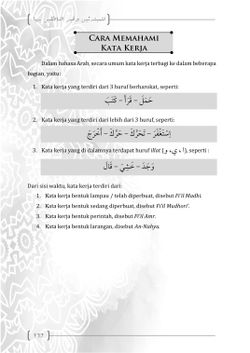 CARA MEMAHAMI
KATA KERJA
Dalam bahasa Arab, secara umum kata kerja terbagi ke dalam beberapa
bagian, yaitu:
1. Kata kerja yang terdiri dari 3 huruf berharakat, seperti:
حَمَلَ – قَرَأَ – كَتَبَ
2. Kata kerja yang terdiri dari lebih dari 3 huruf, seperti:
إِسْتَغْفَرَ – تَحَرَّكَ – حَرَّكَ – أَخْرَجَ
3. Kata kerja yang di dalamnya terdapat huruf illat (ا ، ي، و), seperti :
وَجَدَ – خَشِيَ – قَالَ
Dari sisi waktu, kata kerja terdiri dari:
1. Kata kerja bentuk lampau / telah diperbuat, disebut Fi'il Madhi.
2. Kata kerja bentuk sedang diperbuat, disebut Fi'il Mudhori'.
3. Kata kerja bentuk perintah, disebut Fi'il Amr.
4. Kata kerja bentuk larangan, disebut An-Nahyu.